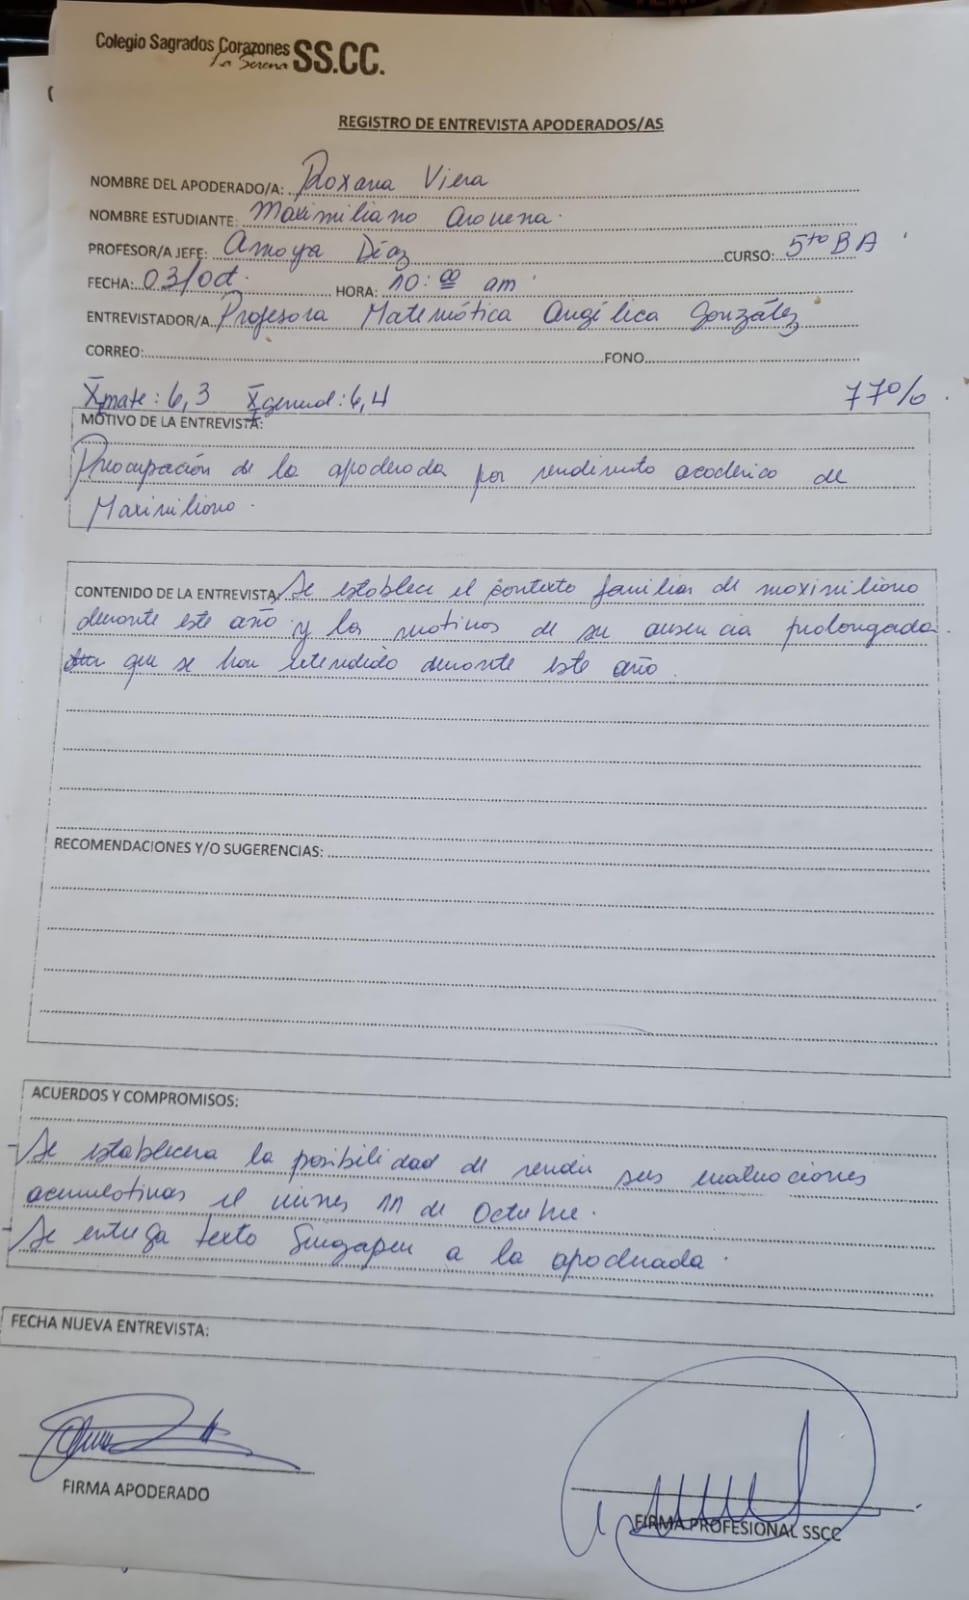 Colegio Sagrados Corazones SS.CC.
La Serena
REGISTRO DE ENTREVISTA APODERADOS/AS
NOMBRE DEL APODERADO/A: Roxana Viera
NOMBRE ESTUDIANTE: Maximiliano Aravena.
PROFESOR/A JEFE: Amoya Díaz CURSO: 5to B A
FECHA: 03/Oct. HORA: 10:00 am
ENTREVISTADOR/A Profesora Matemática Angélica González
CORREO: FONO
X̄mate: 6,3 X̄general: 6,4 77%.
MOTIVO DE LA ENTREVISTA:
Preocupación de la apoderada por rendimiento académico de
Maximiliano.
CONTENIDO DE LA ENTREVISTA: Se establece el contexto familiar de maximiliano
durante este año y los motivos de su ausencia prolongada
que se han extendido durante este año.
RECOMENDACIONES Y/O SUGERENCIAS:
ACUERDOS Y COMPROMISOS:
- Se establecera la posibilidad de rendir sus evaluaciones
acumulativas el viernes 11 de Octubre.
- Se entrega texto Singapur a la apoderada.
FECHA NUEVA ENTREVISTA:
FIRMA APODERADO
FIRMA PROFESIONAL SSCC